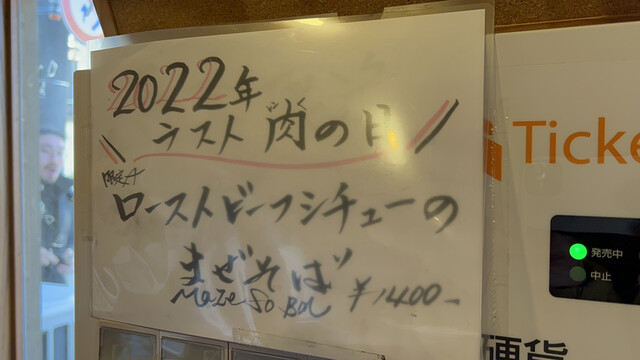 2022年
ラスト 肉の日
ローストビーフシチューの
まぜそば
Maze So Bar ¥1400-
Ticke
発売中
中止
硬貨